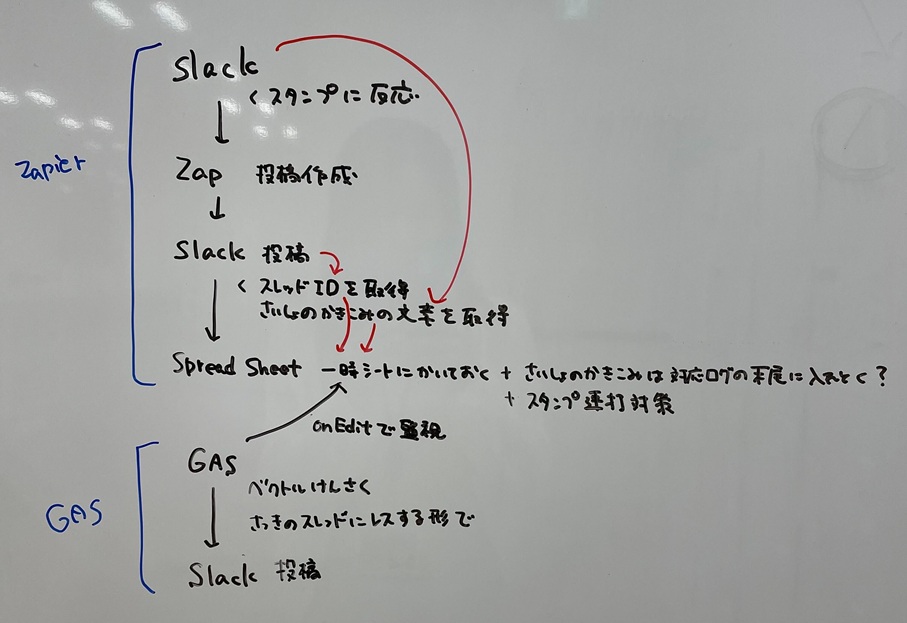 Zapier
Slack
< スタンプに反応.
Zap 投稿作成.
Slack 投稿
< スレッドIDを取得
さいしょのかきこみの文章を取得
Spread Sheet 一時シートにかいておく + さいしょのかきこみは対応ログの末尾に入れとく?
+ スタンプ連打対策
onEditで監視
GAS
GAS
ベクトルけんさく
さっきのスレッドにレスする形で
Slack 投稿